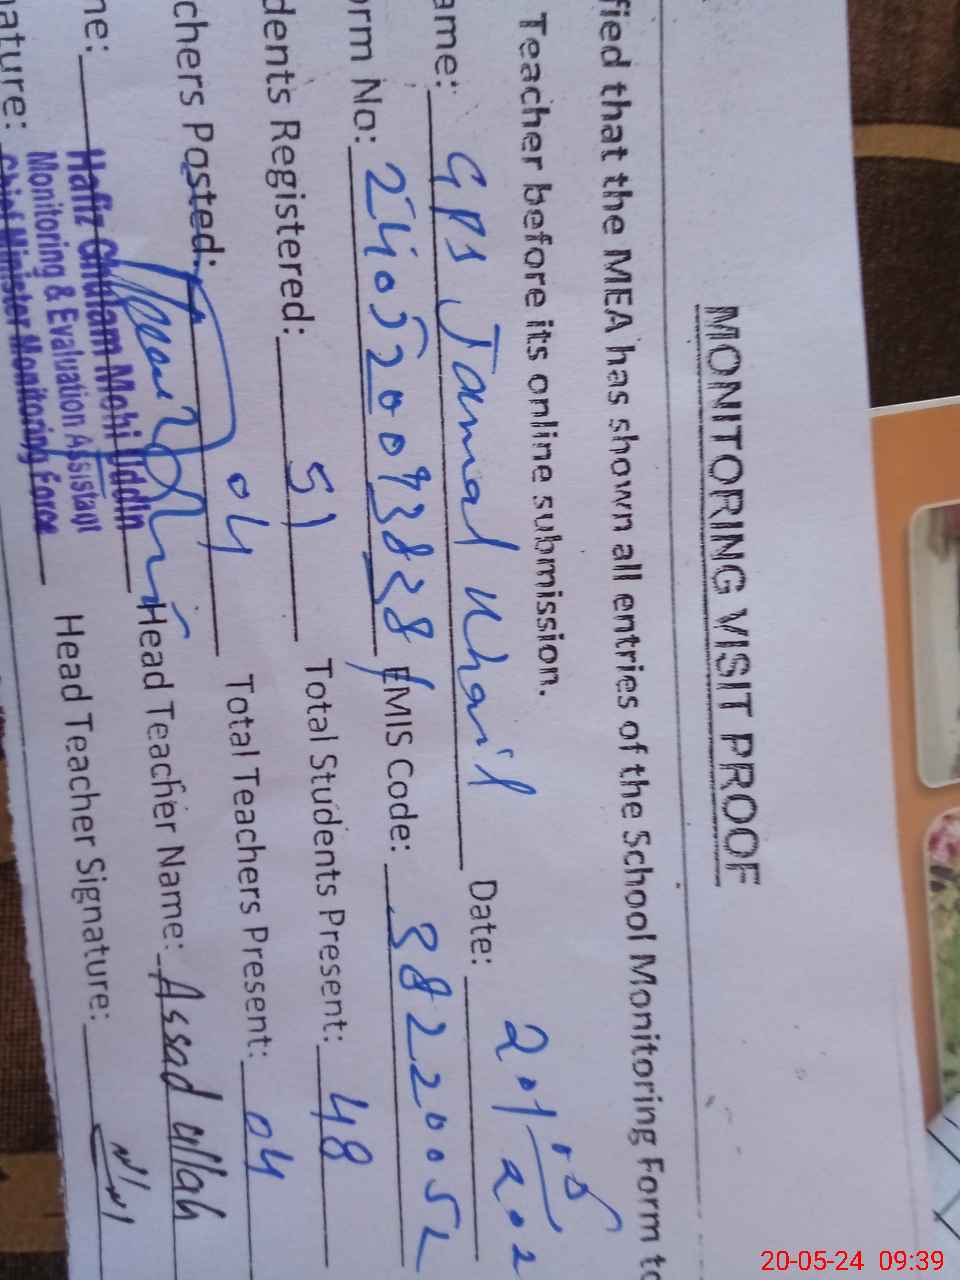 MONITORING VISIT PROOF
fied that the MEA has shown all entries of the School Monitoring Form to
Teacher before its online submission.
ame: GPS Jamal Khail Date: 20/05/202
orm No: EMIS Code: 38220052
dents Registered: 51 Total Students Present: 48
chers Posted: 04 Total Teachers Present: 04
me: Hafiz Ghulam Mohi Uddin Head Teacher Name: Assad ullah
Monitoring & Evaluation Assistant
ature: Chief Minister Monitoring Force Head Teacher Signature:
20-05-24 09:39